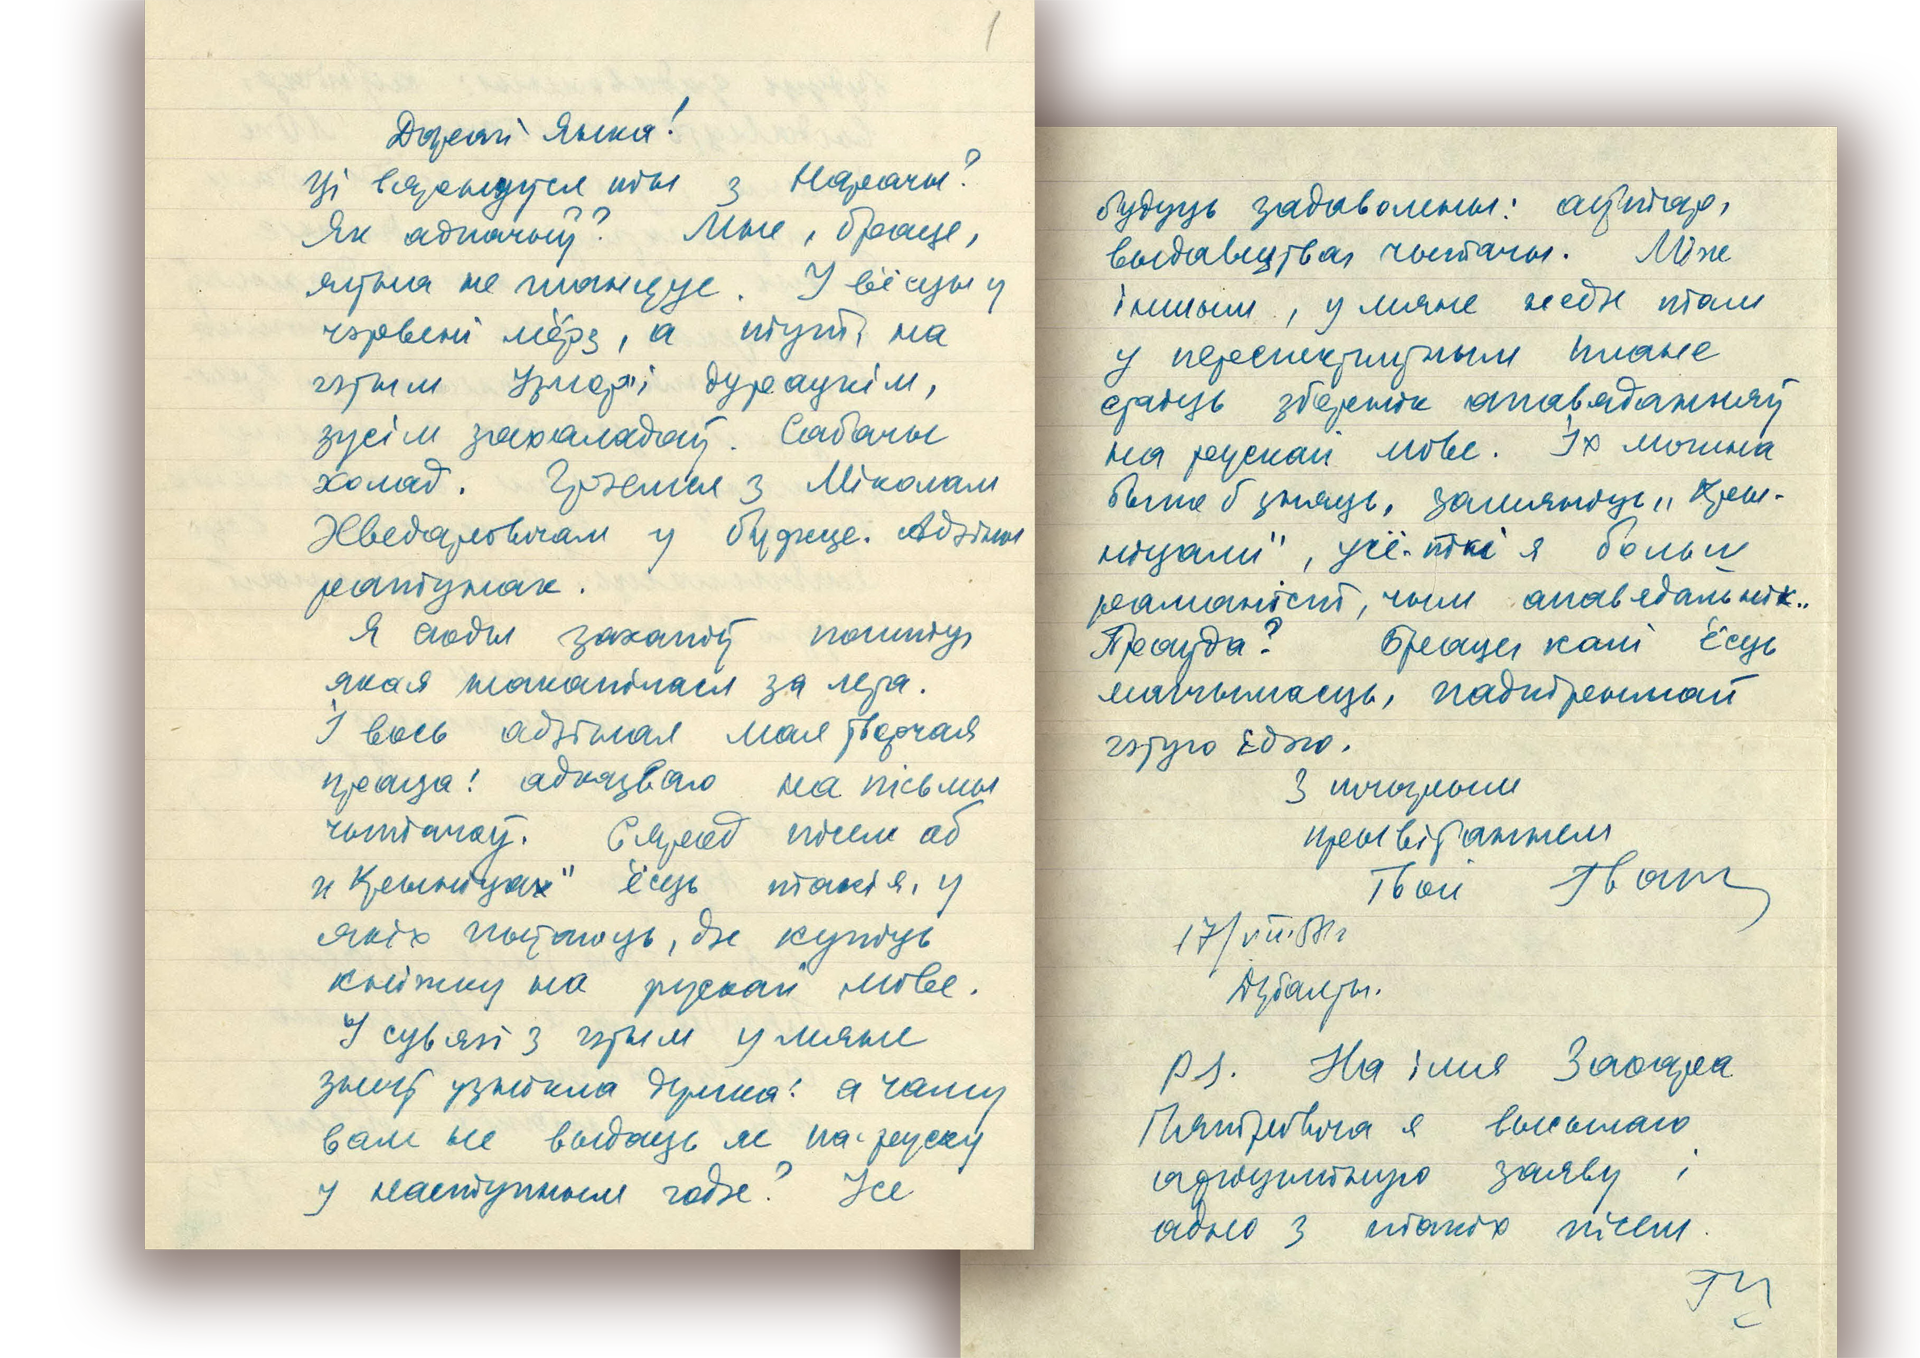 1
Дарагі Янка!
Ці вярнуўся ты з Нарачы?
Як адпачыў? Мне, браце,
яўна не шанцуе. У вёсцы у
чэрвені мёрз, а тут, на
гэтым Узмор'і дурацкім,
зусім захаладаў. Сабачы
холад. Грэемся з Міколам
Хведаровічам у будцы. Адзіны
ратунак.
Я сюды захапіў пошту,
якая накапілася за лета.
І вось адзіная мая творчая
праца: адказваю на пісьмы
чытачоў. Сярод пісем аб
"Крыніцах" ёсць такія, у
якіх пытаюць, дзе купіць
кніжку на рускай мове.
У сувязі з гэтым у мяне
зноў узнікла думка: а чаму
вам не выдаць яе па-руску
у наступным годзе? Усе
будуць задаволены: аўтар,
выдавецтва, чытачы. Між
іншым, у мяне недзе там
у перспектыўным плане
стаіць зборнік апавяданняў
на рускай мове. Іх можна
было б зняць, замяніць "Кры-
ніцамі", усё-ткі я больш
раманіст, чым апавядальнік..
Праўда? Браце, калі ёсць
магчымасць, падтрымай
гэтую ідэю.
З шчырым
прывітаннем
Твой Іван
17/VIII.57г
Дубулты.
P.S. На імя Захара
Пятровіча я высылаю
адпаведную заяву і
адно з такіх пісем.
ІШ